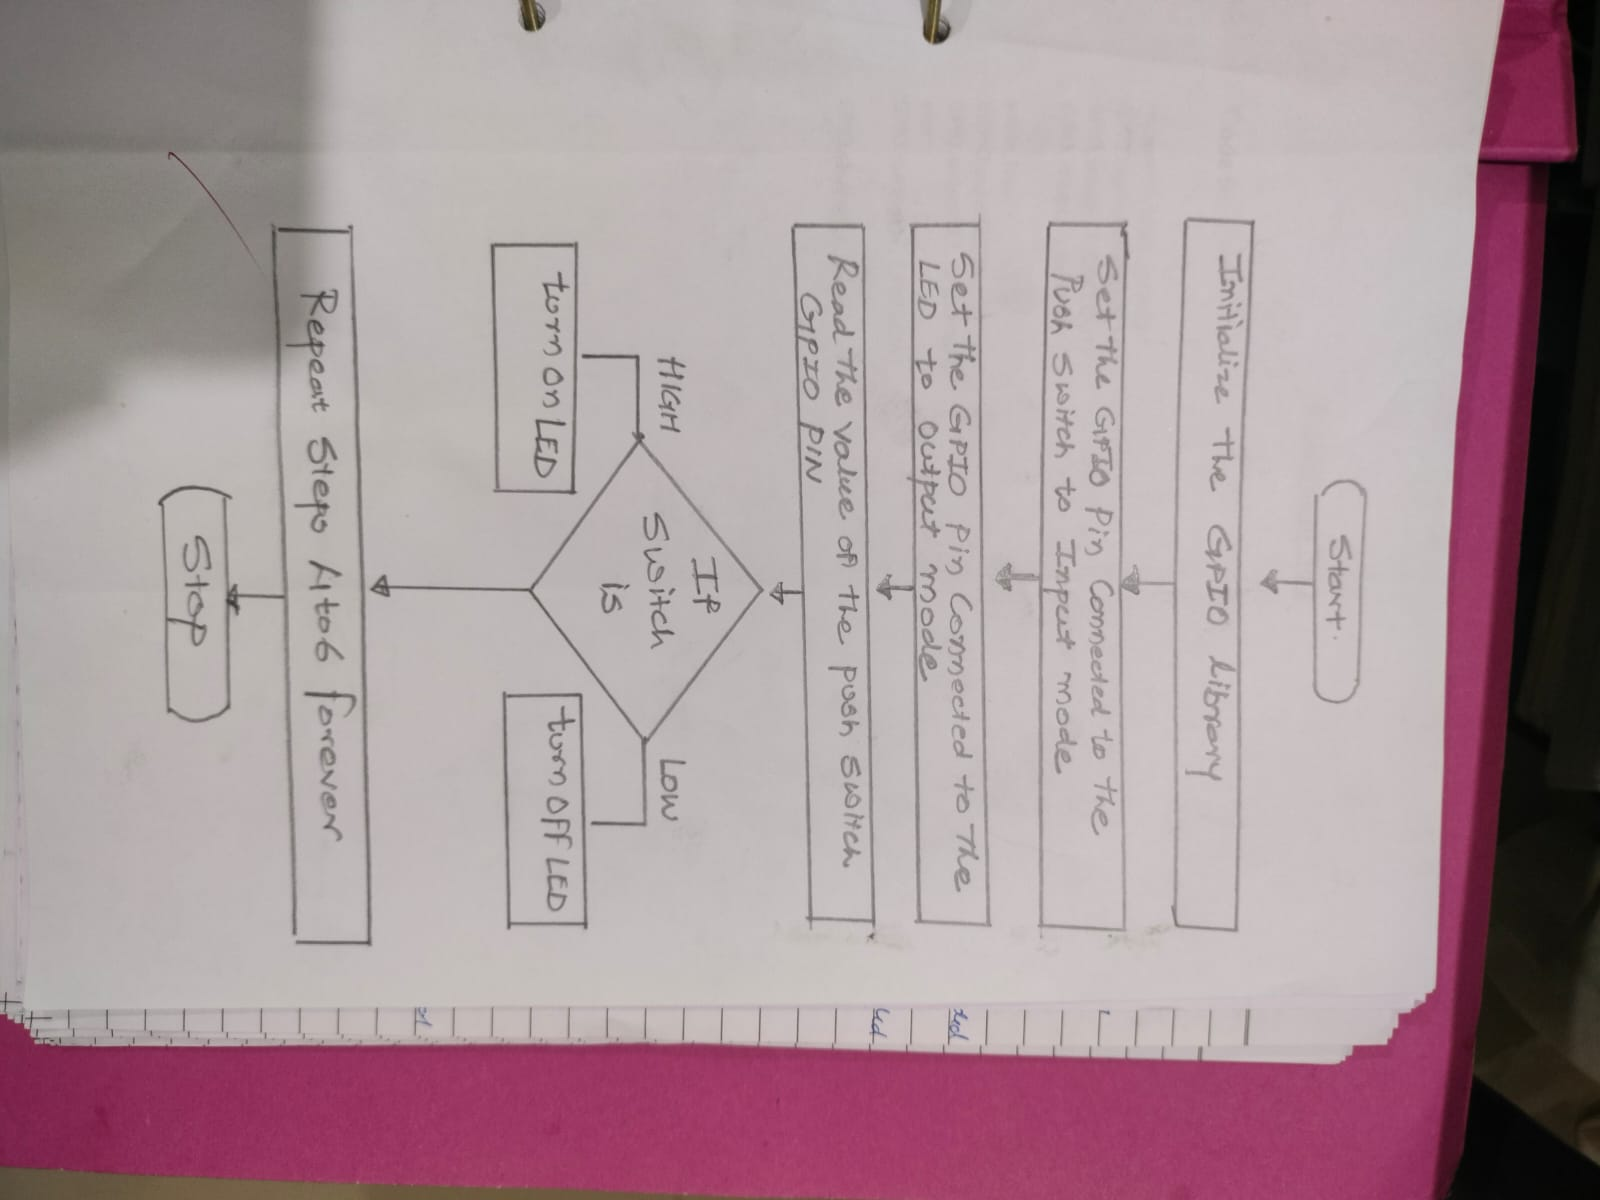 Start.
Initialize the GPIO library
Set the GPIO Pin Connected to the
Push Switch to Input mode
Set the GPIO Pin Connected to the
LED to output mode
Read the value of the push switch
GPIO PIN
If
Switch
is
HIGH
LOW
turn on LED
turn OFF LED
Repeat Steps 4 to 6 forever
Stop